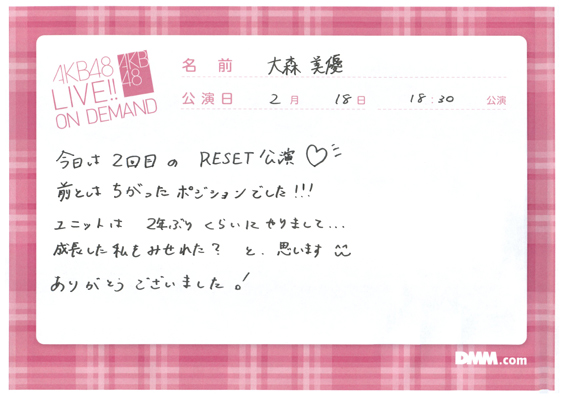 AKB48
LIVE!!
ON DEMAND
AKB
48
名前 大森美優
公演日 2月 18日 18:30 公演
今日は 2回目の RESET公演♡
前とは ちがった ポジションでした!!!
ユニットは 2年ぶり くらいに やりまして...
成長した 私を みせれた? と、思います
ありがとう ございました。!
DMM.com